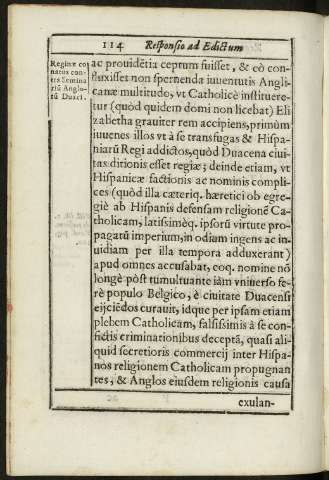 114 Responsio ad Edictum
Reginæ co
natus con-
tra Semina
riũ Anglo-
rũ Duaci.
ac prouidẽtia ceptum fuisset, & eò con-
fluxisset non spernenda iuuentutis Angli
canæ multitudo, vt Catholicè institueré-
tur (quòd quidem domi non licebat) Eli
zabetha grauiter rem accipiens, primùm
iuuenes illos vt à se transfugas & Hispa-
niarũ Regi addictos, quòd Duacena ciui
tas ditionis esset regiæ; deinde etiam, vt
Hispanicæ factionis ac nominis compli
ces (quòd illa cæteriq. hæretici ob egre-
giè ab Hispanis defensam religionẽ Ca-
tholicam, latissimèq. ipsorũ virtute pro-
pagatũ imperium, in odium ingens ac in
uidiam per illa tempora adduxerant)
apud omnes accusabat, eoq. nomine nõ
longè pòst tumultuante iàm vniuerso fe-
rè populo Belgico, è ciuitate Duacensi
eijciẽdos curauit, idque per ipsam etiam
plebem Catholicam, falsissimis à se con-
fictis criminationibus deceptã, quasi ali-
quid secretioris commercij inter Hispa-
nos religionem Catholicam propugnan
tes, & Anglos eiusdem religionis causa
exulan-